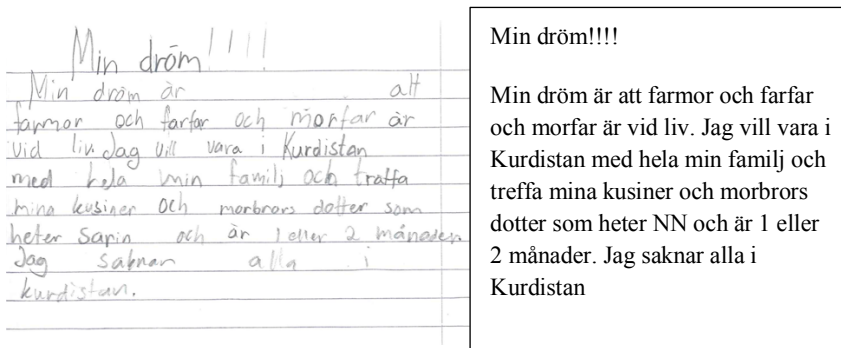 Min dröm!!!!
Min dröm är att
farmor och farfar och morfar är
vid liv. Jag vill vara i Kurdistan
med hela min familj och traffa
mina kusiner och morbrors dotter som
heter Sarin och är 1 eller 2 månader.
Jag saknar alla i
kurdistan.
Min dröm!!!!
Min dröm är att farmor och farfar
och morfar är vid liv. Jag vill vara i
Kurdistan med hela min familj och
treffa mina kusiner och morbrors
dotter som heter NN och är 1 eller
2 månader. Jag saknar alla i
Kurdistan